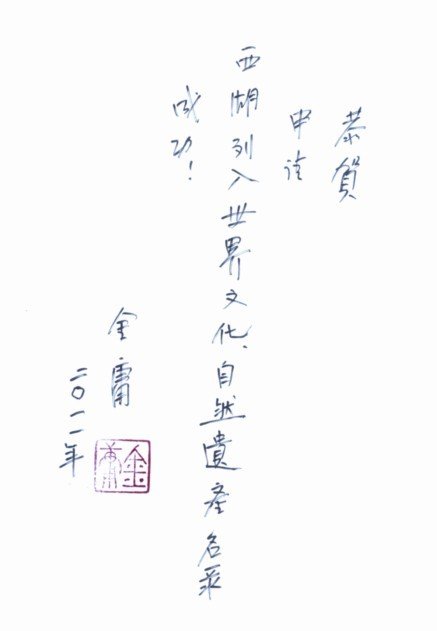 恭賀
申請
西湖列入世界文化、自然遺產名录
成功！
金庸
二〇一一年
金庸